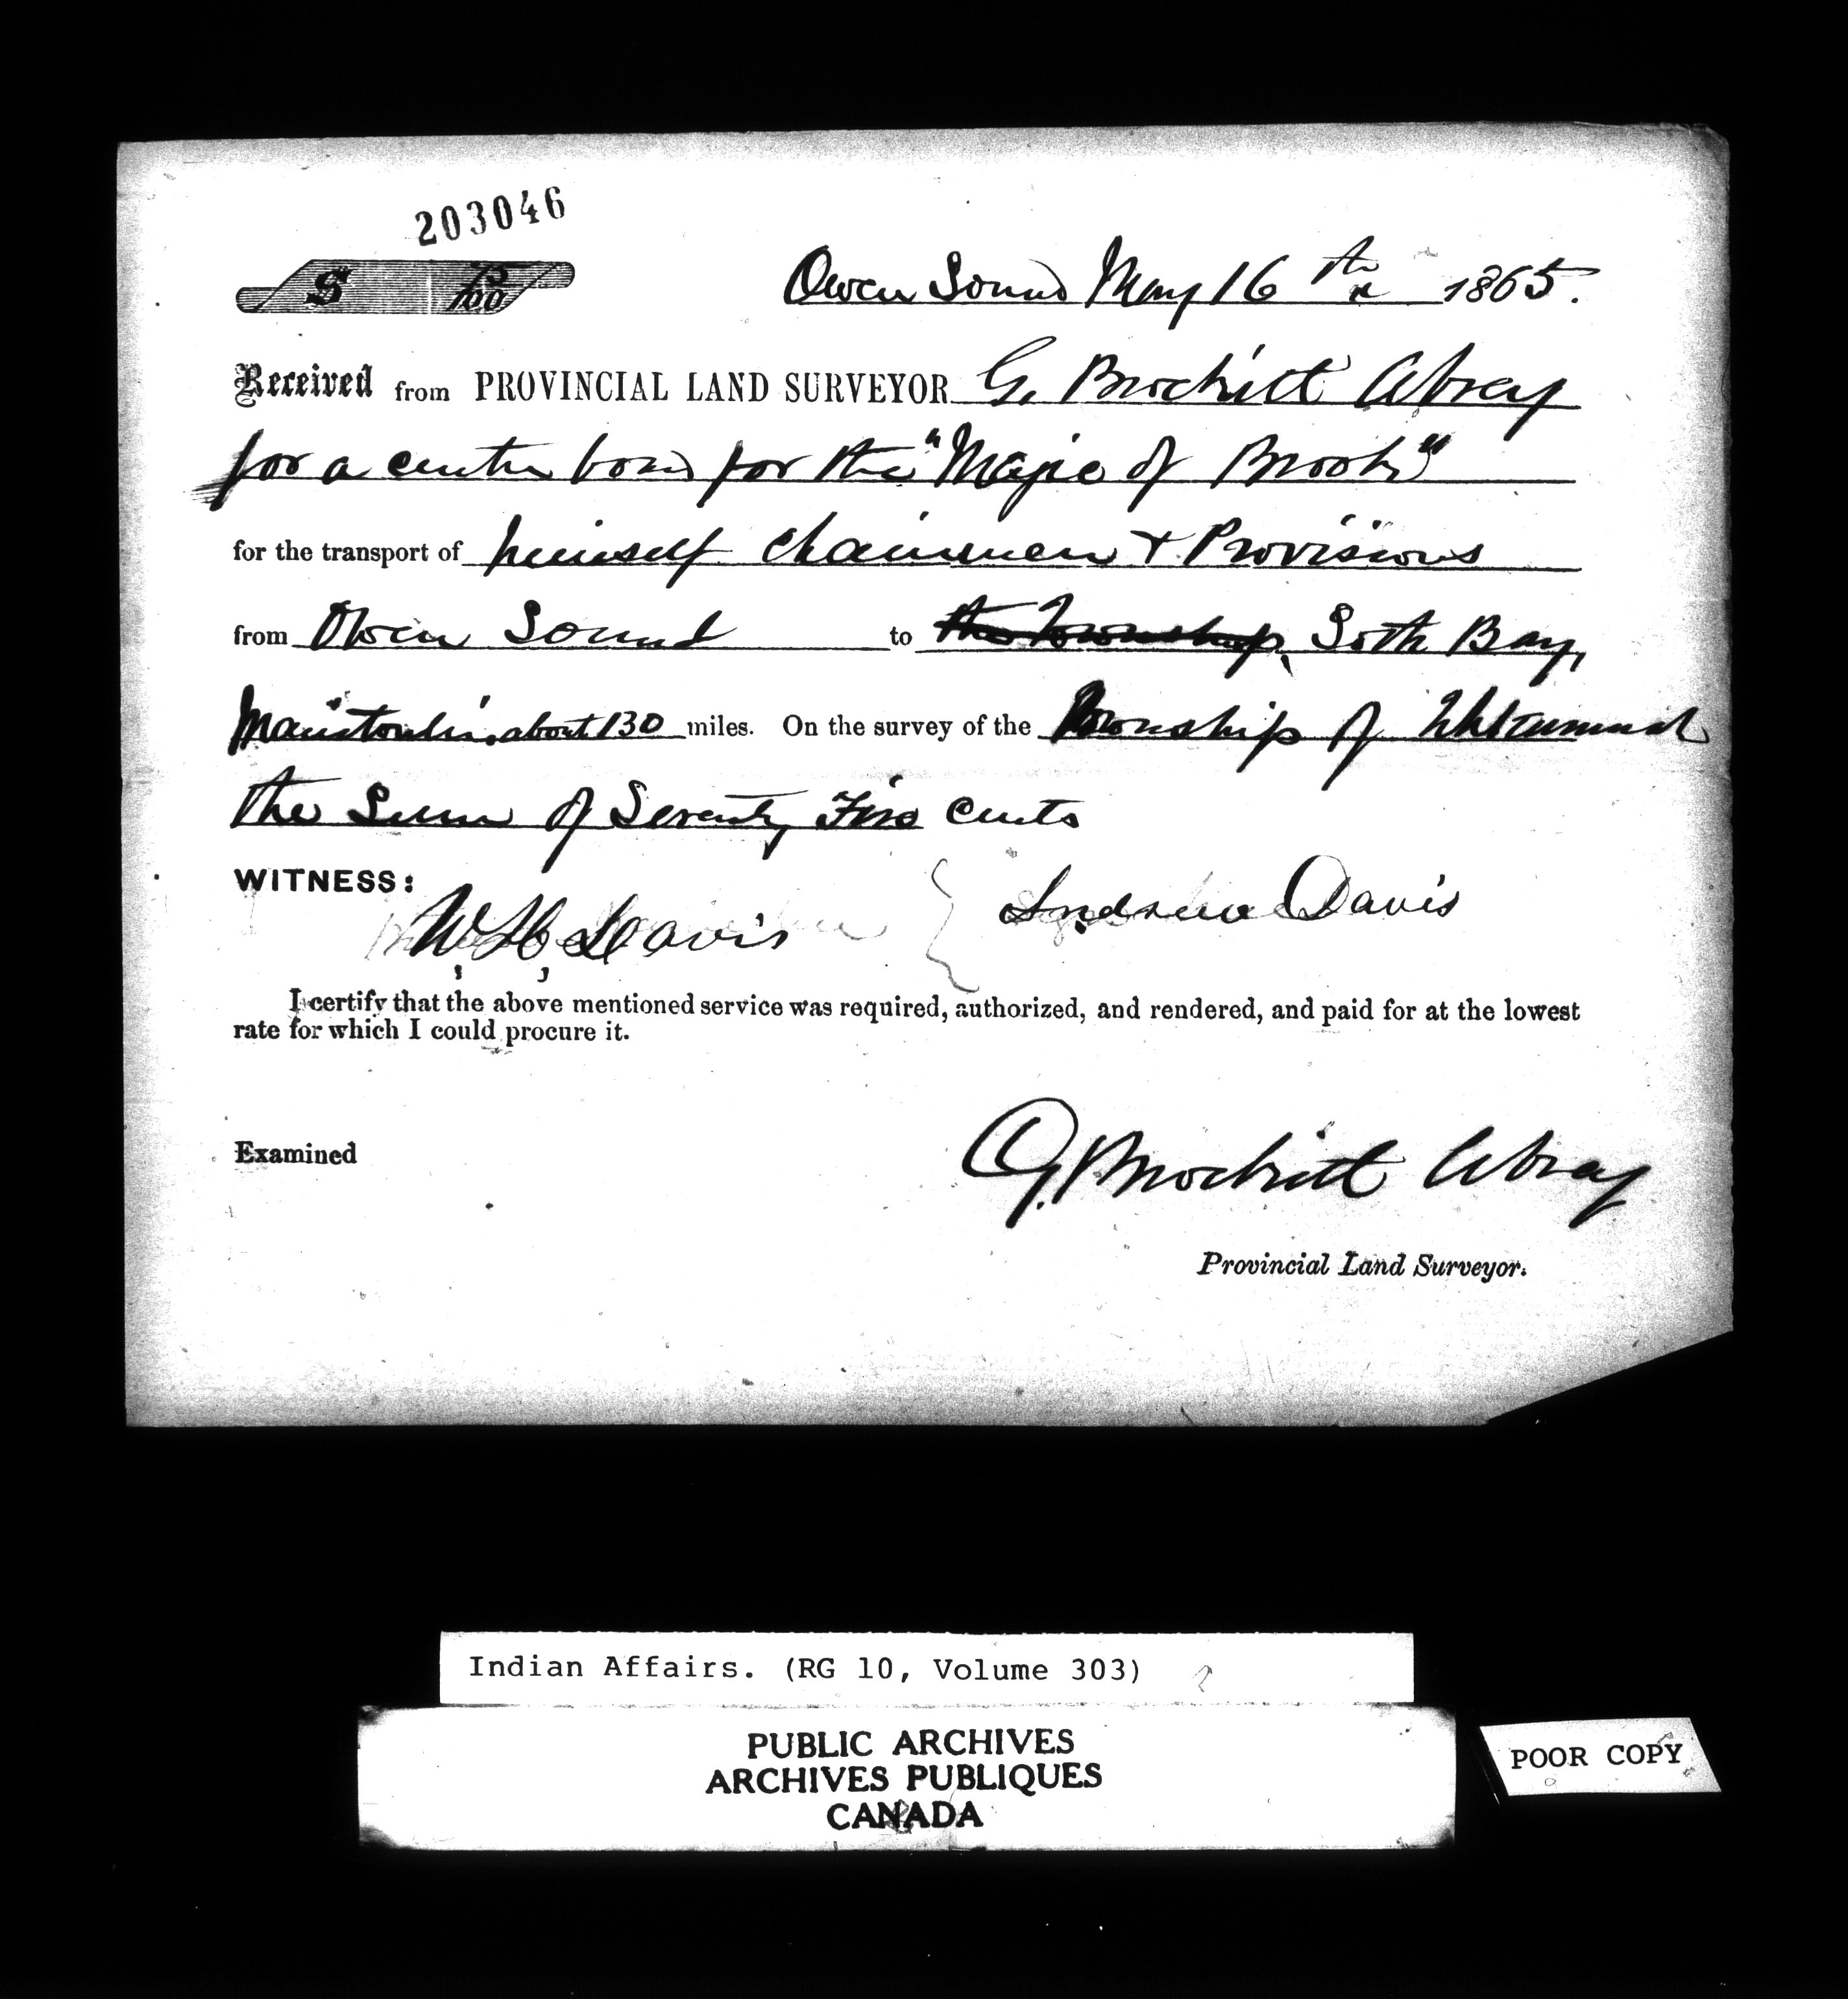 203046
$ 75/100
Owen Sound May 16th 1865.
Received from PROVINCIAL LAND SURVEYOR G. Brockitt Abrey
for a centre board for the "Magic of Brook"
for the transport of himself chainmen & Provisions
from Owen Sound to the Township, Soth Bay,
Manitoulin, about 130 miles. On the survey of the Township of
the Sum of Seventy Five Cents
WITNESS:
W. H. Davis Andrew Davis
I certify that the above mentioned service was required, authorized, and rendered, and paid for at the lowest
rate for which I could procure it.
Examined
G. Brockitt Abrey
Provincial Land Surveyor.
Indian Affairs. (RG 10, Volume 303)
PUBLIC ARCHIVES
ARCHIVES PUBLIQUES
CANADA
POOR COPY